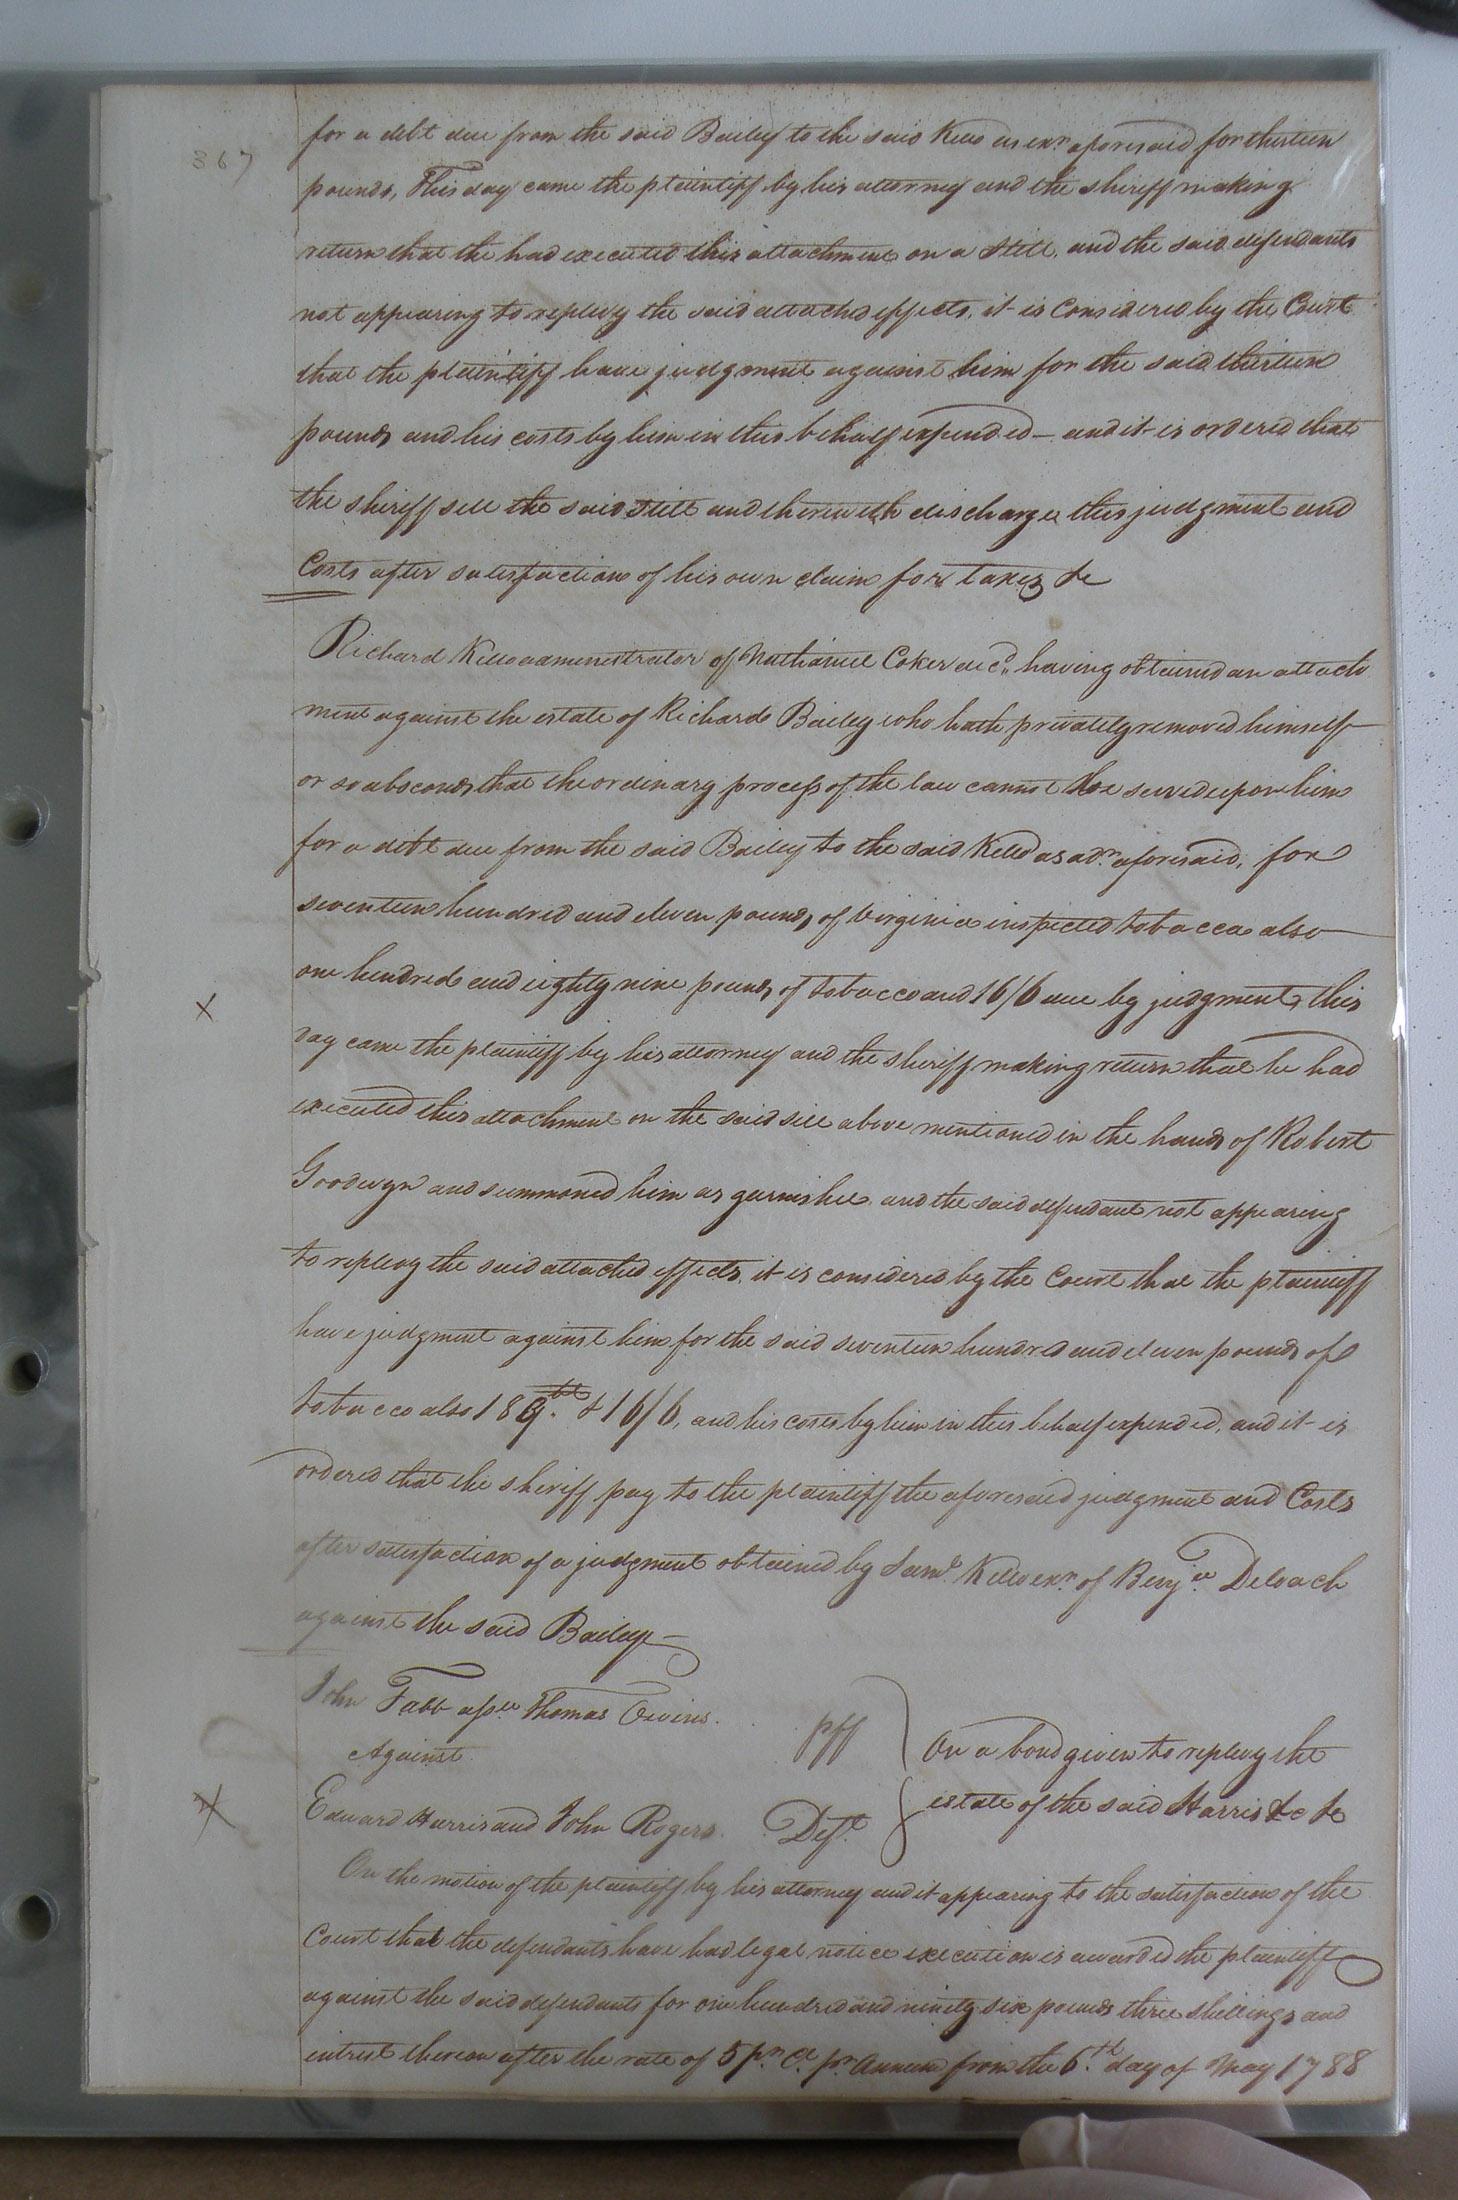 367
for a debt due from the said Bailey to the said Kello as exr. aforesaid for thirteen
pounds, This day came the plaintiff by his attorney and the sheriff making
return that the had executed this attachment on a Still, and the said defendants
not appearing to replevy the said attached effects, it is Considered by the Court
that the plaintiff have judgment against him for the said thirteen
pounds and his costs by him in this behalf expended – and it is ordered that
the sheriff sell the said Still and therewith discharge this judgment and
Costs after satisfaction of his own claim for taxes &c
Richard Kello administrator of Nathaniel Coker decd. having obtained an attach
ment against the estate of Richard Bailey who hath privately removed himself
or so absconds that the ordinary process of the law cannot be served upon him
for a debt due from the said Bailey to the said Kello as adr. aforesaid, for
seventeen hundred and eleven pounds of Virginia inspected tobacco also
one hundred and eighty nine pounds of tobacco and 16/6 due by judgment, this
X
day came the plaintiff by his attorney and the sheriff making return that he had
executed this attachment on the said still above mentioned in the hands of Robert
Goodwyn and summoned him as garnishee and the said defendant not appearing
to replevy the said attached effects, it is considered by the Court that the plaintiff
have judgment against him for the said seventeen hundred and eleven pounds of
tobacco also 189. & 16/6, and his costs by him in this behalf expended, and it is
ordered that the sheriff pay to the plaintiff the aforesaid judgment and Costs
after satisfaction of a judgment obtained by Saml. Kello exr. of Benja. Deloach
against the said Bailey –
John Tabb asse. Thomas Owens. plf
On a bond given to replevy the
Against
Edward Harris and John Rogers. Deft.
estate of the said Harris &c &c
X
On the motion of the plaintiff by his attorney and it appearing to the satisfaction of the
Court that the defendants have had legal notice execution is awarded the plaintiff
against the said defendants for one hundred and ninety six pounds three shillings and
intrest thereon after the rate of 5 pr. Ct. pr. Annum from the 6th. day of May 1788